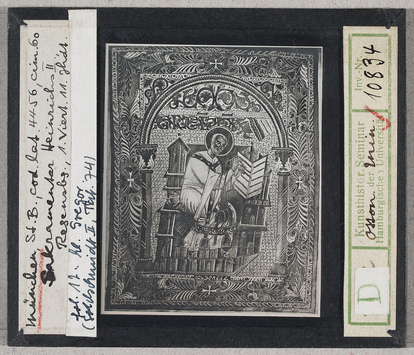 München St.B., Cod. lat. 4456 cim. 60
Sakramentar Heinrichs II
Regensbg., 1. Viert. 11. Jhdt.
fol. 12 hl. Gregor
(Goldschmidt II Taf. 74)
Kunsthistor. Seminar
der
Hamburgischen Universität
Inv.-Nr.
10834
D